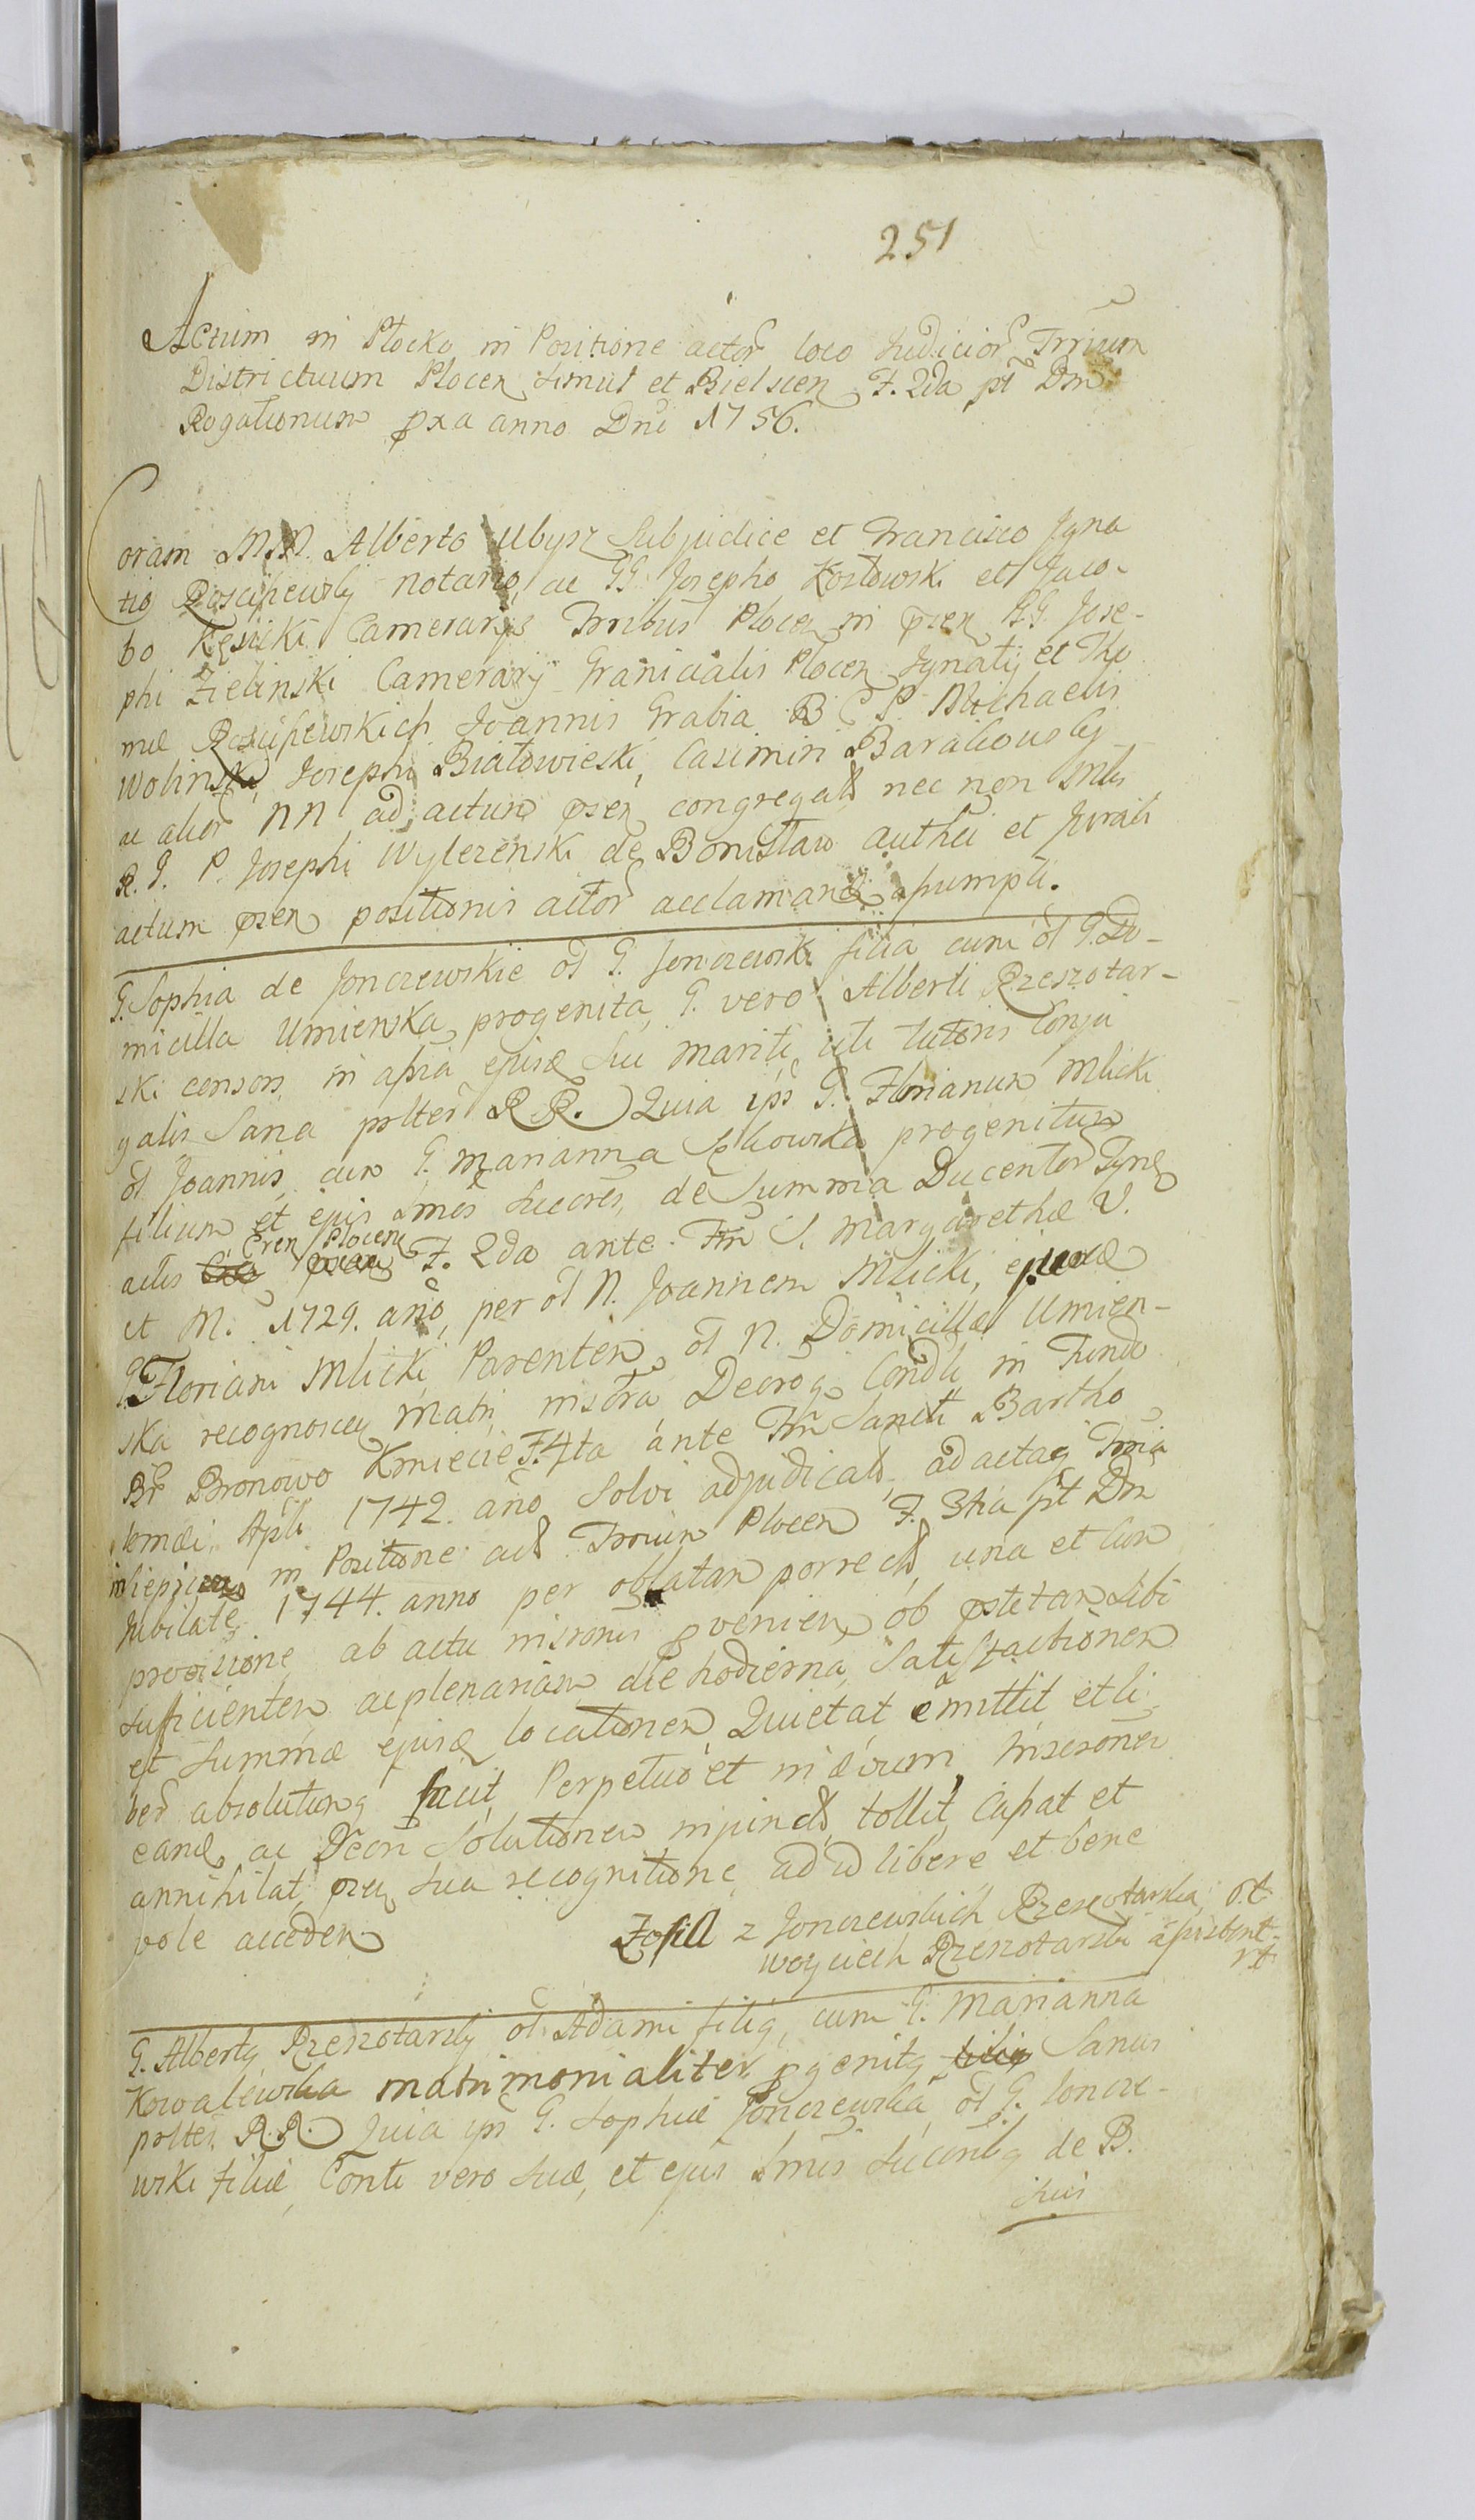 251
Actum in Plocko in Positione actor loco Judicior Trrium
Districtuum Plocen simul et Bielscen F. 2da pt Dm
Rogationum pxa anno Dni 1756.
Coram M.M. Alberto Ubysz Subjudice et Francisco Igna
tio Rosciszewsky notario, ac GG Josepho Kozłowski et Jaco-
bo Kęsicki Camerarys Trribus Plocen in psen GG. Jose-
phi Zielinski Camerarÿ Granicialis Plocen Ignatÿ et Tho
mæ Rosciszewskich Joannis Grabia B C P. Michaelis
Wolinski, Josephi Białowieski, Casimiri
ac alior NN ad actum psen congregat nec non Mli
R. J. P. Josephi Wylezenski de Bonisław authci et Jurati
actum psen positionis actor acclamand assumpti.
G. Sophia de Jonczewskie ol G. Jonczewski filia cum ol G. Do-
micilla Umienska progenita, G. vero Alberti Rzeszotar-
ski consors, in assia ejusd sui mariti uti tutoris Conju
galis Sana pstter R R. Quia ips G. Florianum Mlicki
ol Joannis, cum G. Marianna progenitum
filium et ejus Smos Succores, de Summa Ducentor
actis Cren Plocen F. 2da ante Fm S. Margarethæ V.
et M. 1729. ano, per ol N. Joannem Mlicki, ejusd
G. Floriani Mlicki Parentem ol N. Domicillæ Umien-
ska recognoscen Matri, inscra Decroq Condli in Fundo
Br Bronowo Kmiecie F. 4ta ante Fm Sancti Bartho
lomæi Apli 1742. ano Solvi adjudicat, ad actaq Trria
in Positione act Trrium Plocen F. 3tia pt Dm
Jubilate 1744. anno per oblatam porrect, una et cum
provisione ab actu inscronis pvenien ob pstitam sibi
sufficientem ac plenariam die hodierna, Satisfactionem
et summæ ejusd locationem, Quietat emittit et li
ber absolutumq facit, Perpetuo et in ævum, Inscronem
eand, ac Decri Solutionem injunct, tollit, Cassat et
annihilat, psen sua recognitione ad id libere et bene
vole acceden
Zofia z Jonczewskich Rzeszotarska, r.t.
Woyciech Rzeszotarski assistent
rt
G. Albertg Rzeszotarsky ol Adami filig, cum G. Marianna
Kowalewska matrimonialiter pgenitg filig Sanus
pstter R.R. Quia ips G. Sophiæ Jonczewska, ol G. Joncze-
wski filiæ, Conti vero suæ, et ejus Smis Succoribg de B.